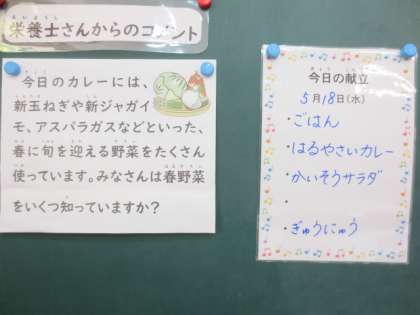 栄養士さんからのコメント
今日のカレーには、
新玉ねぎや新ジャガイ
モ、アスパラガスなどといった、
春に旬を迎える野菜をたくさん
使っています。みなさんは春野菜
をいくつ知っていますか？
今日の献立
5月18日(水)
・ごはん
・はるやさいカレー
・かいそうサラダ
・
・ぎゅうにゅう